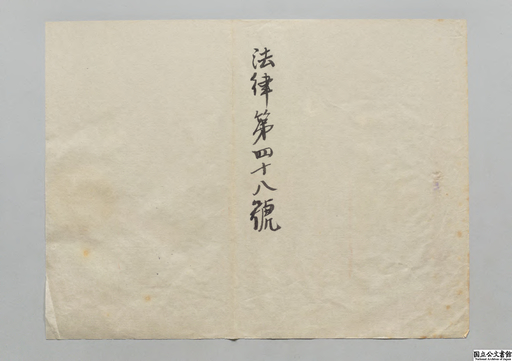 法律第四十八號
国立公文書館
National Archives of Japan